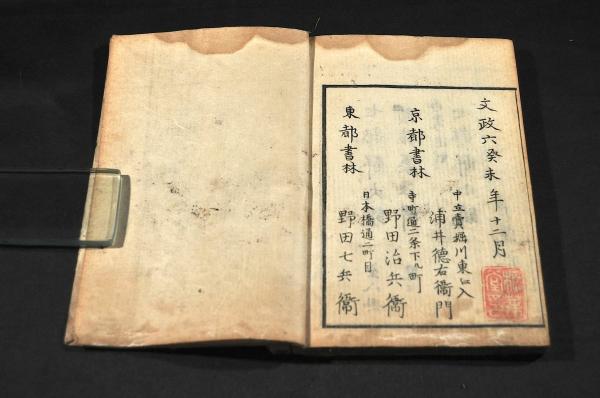 文政六癸未年十二月
中立賣堀川東江入
浦井徳右衛門
京都書林
寺町通二条下ル町
野田治兵衛
東都書林
日本橋通二町目
野田七兵衛